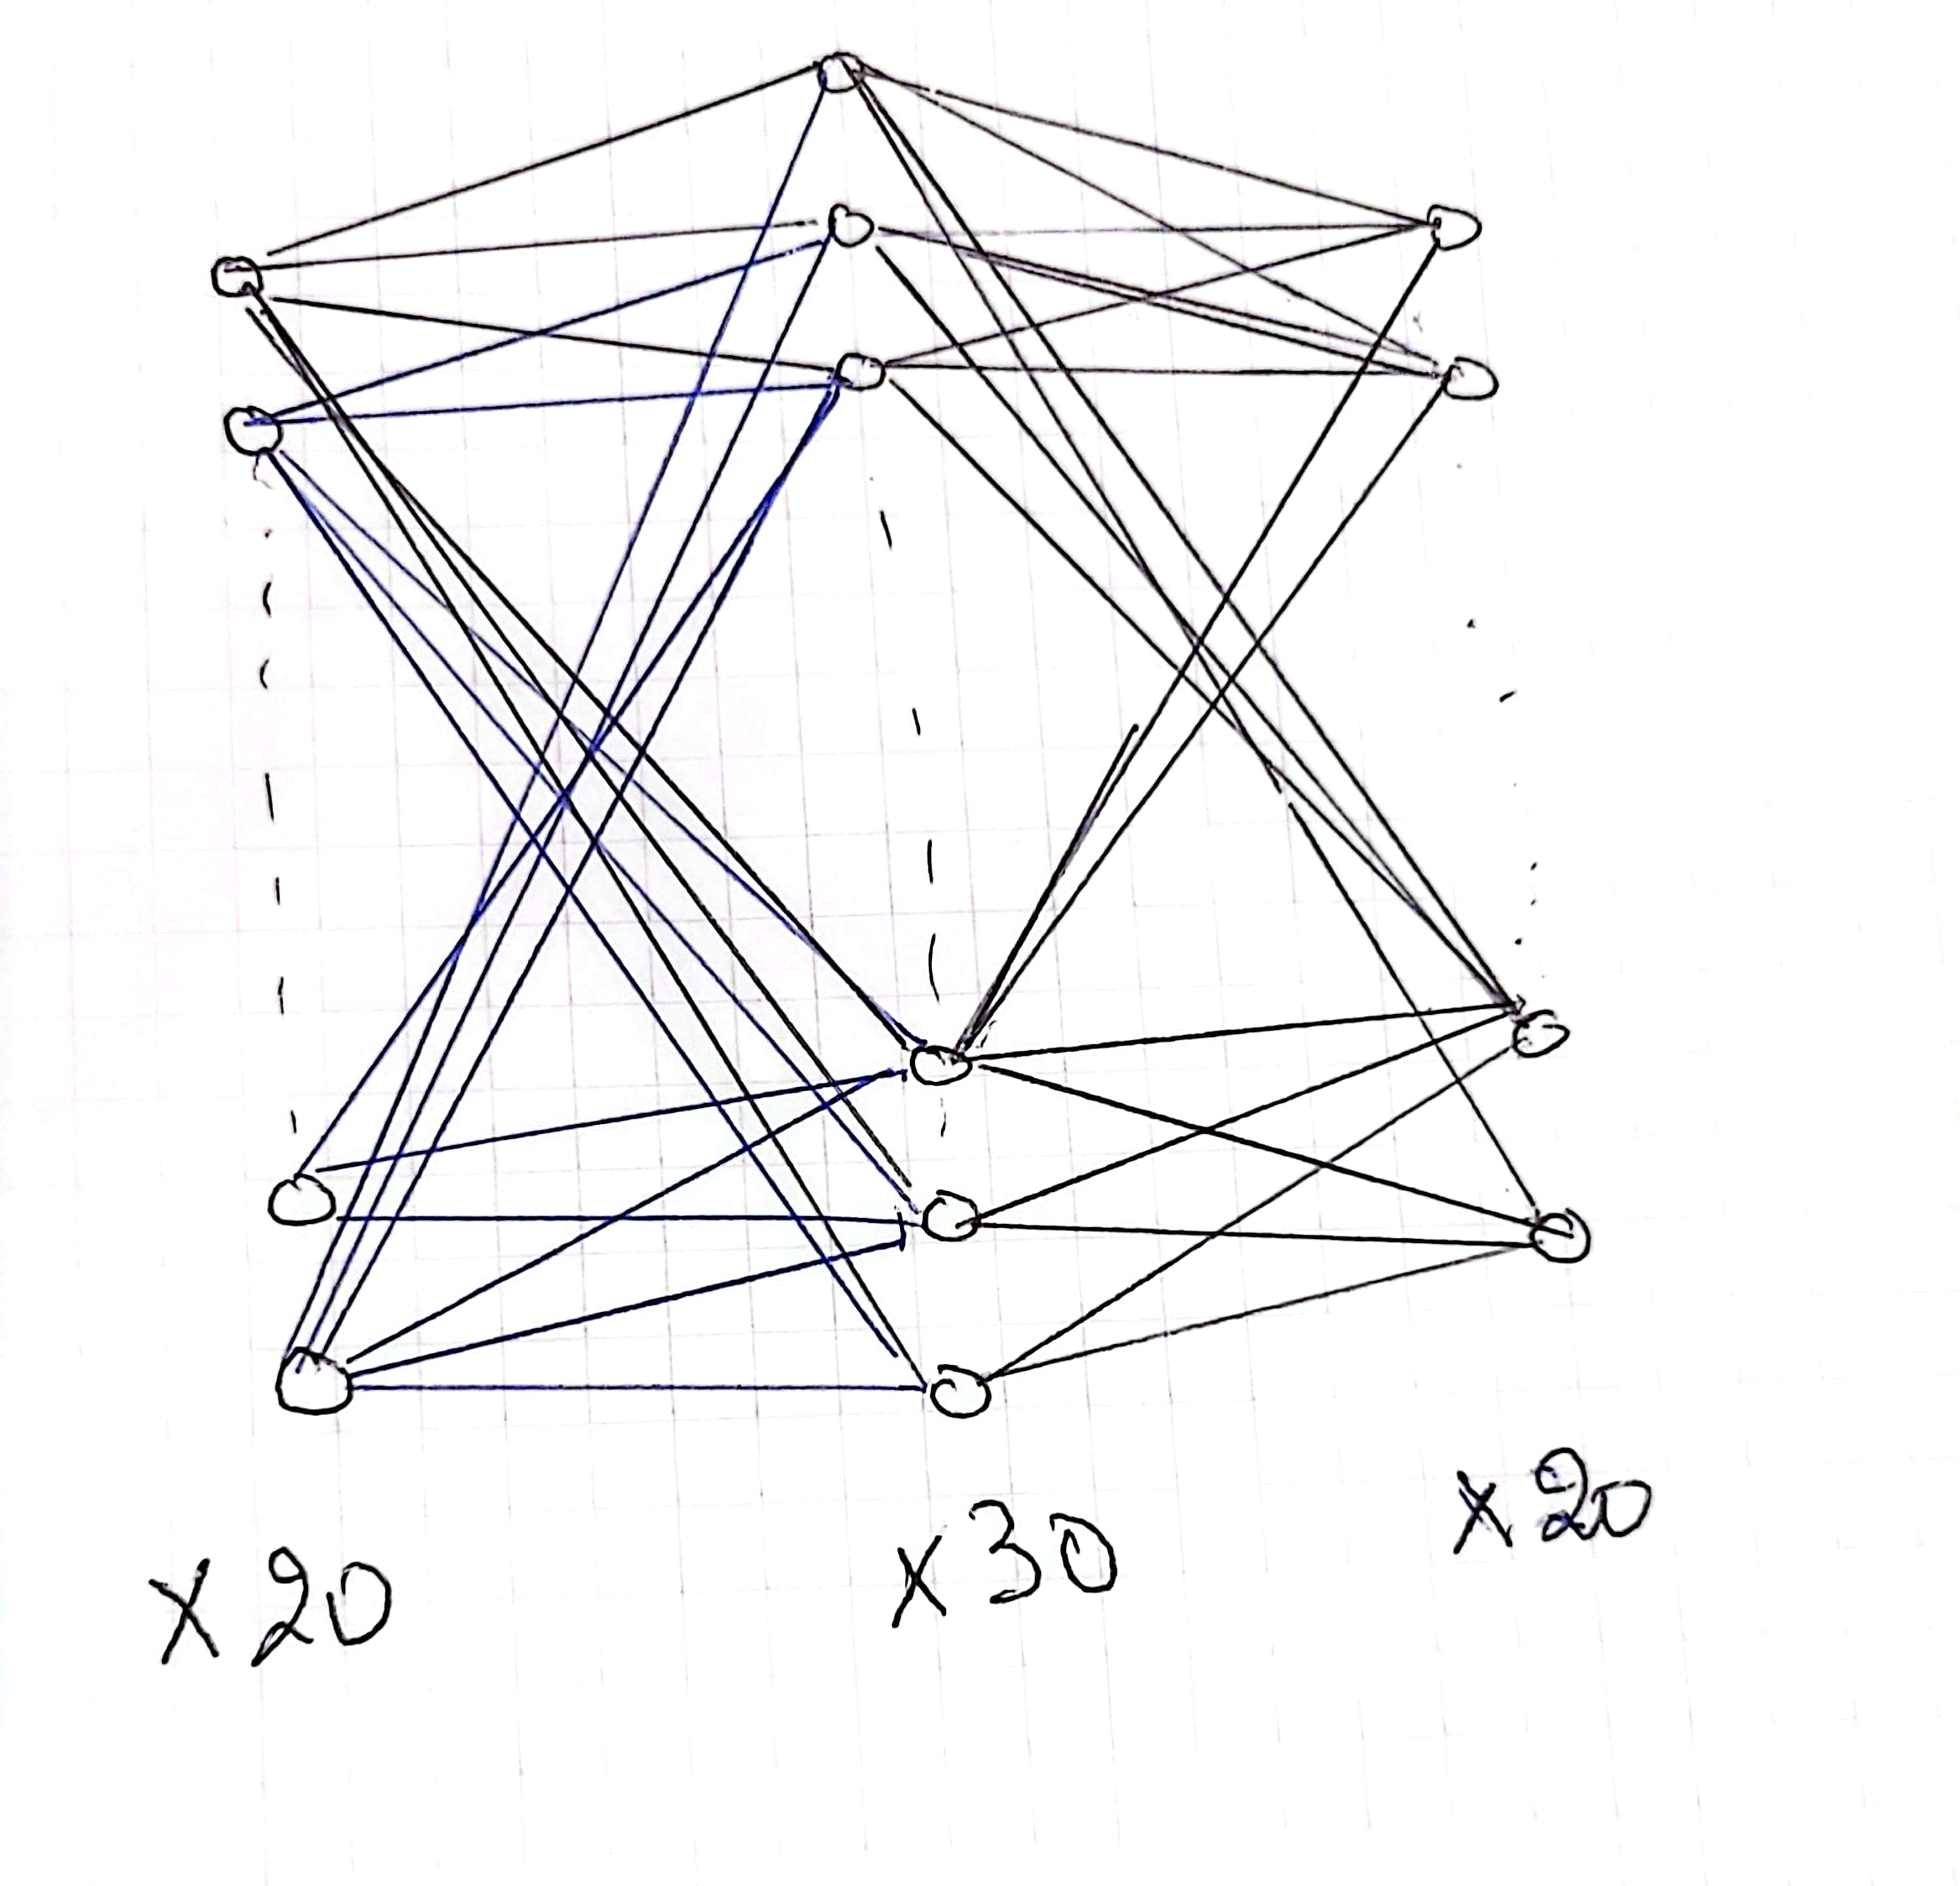 x 20
x 30
x 20